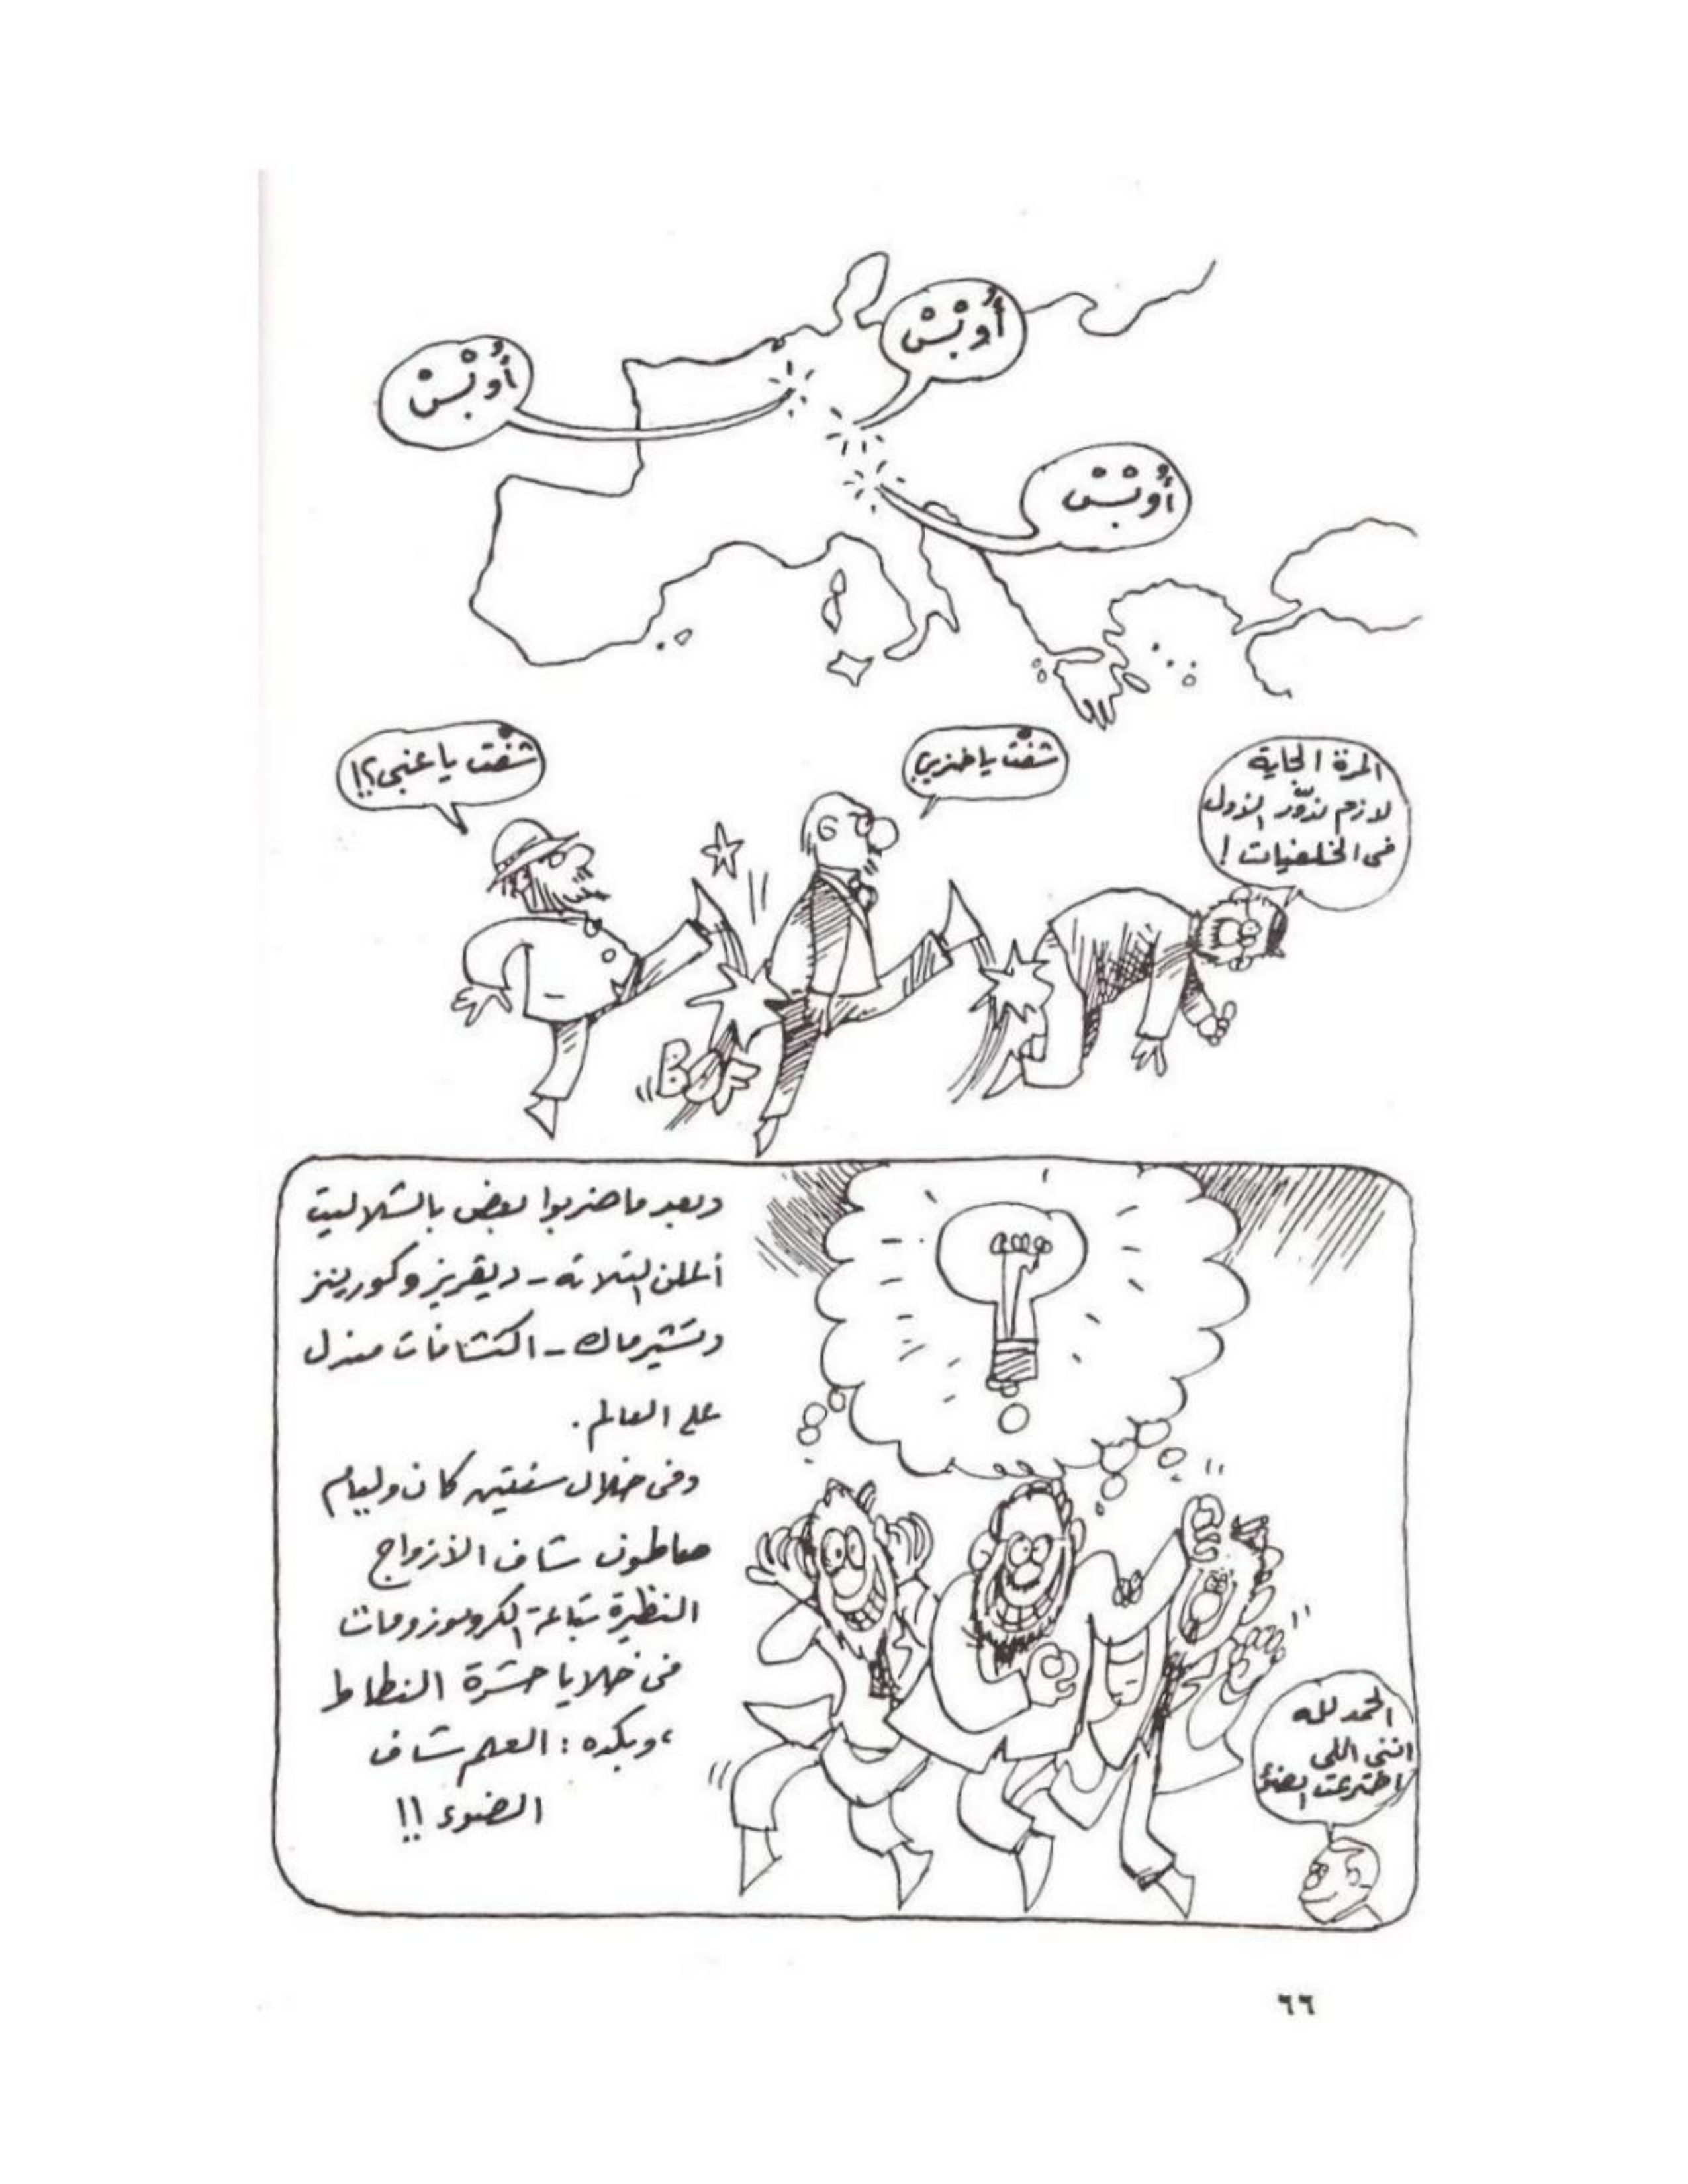 أُوبْسْ
أُوبْسْ
أُوبْسْ
المرة الجاية
لازم ندوّر الأول
فى الخلفيات !
شفت يا خنزير
شفت يا غبى ؟!
BOF
وبعد ما ضربوا بعض بالشلاليت
أعلن التلاتة - ديفريز وكورينز
وتشيرماك - اكتشافات مندل
على العالم .
وفى خلال سنتين كان وليام
صاطون شاف الأزواج
النظيرة بتاعة الكروموزومات
فى خلايا حشرة النطاط
، وبكده : العلم شاف
الضوء !!
الحمد لله
اننى اللى
اخترعت الضوء
٦٦